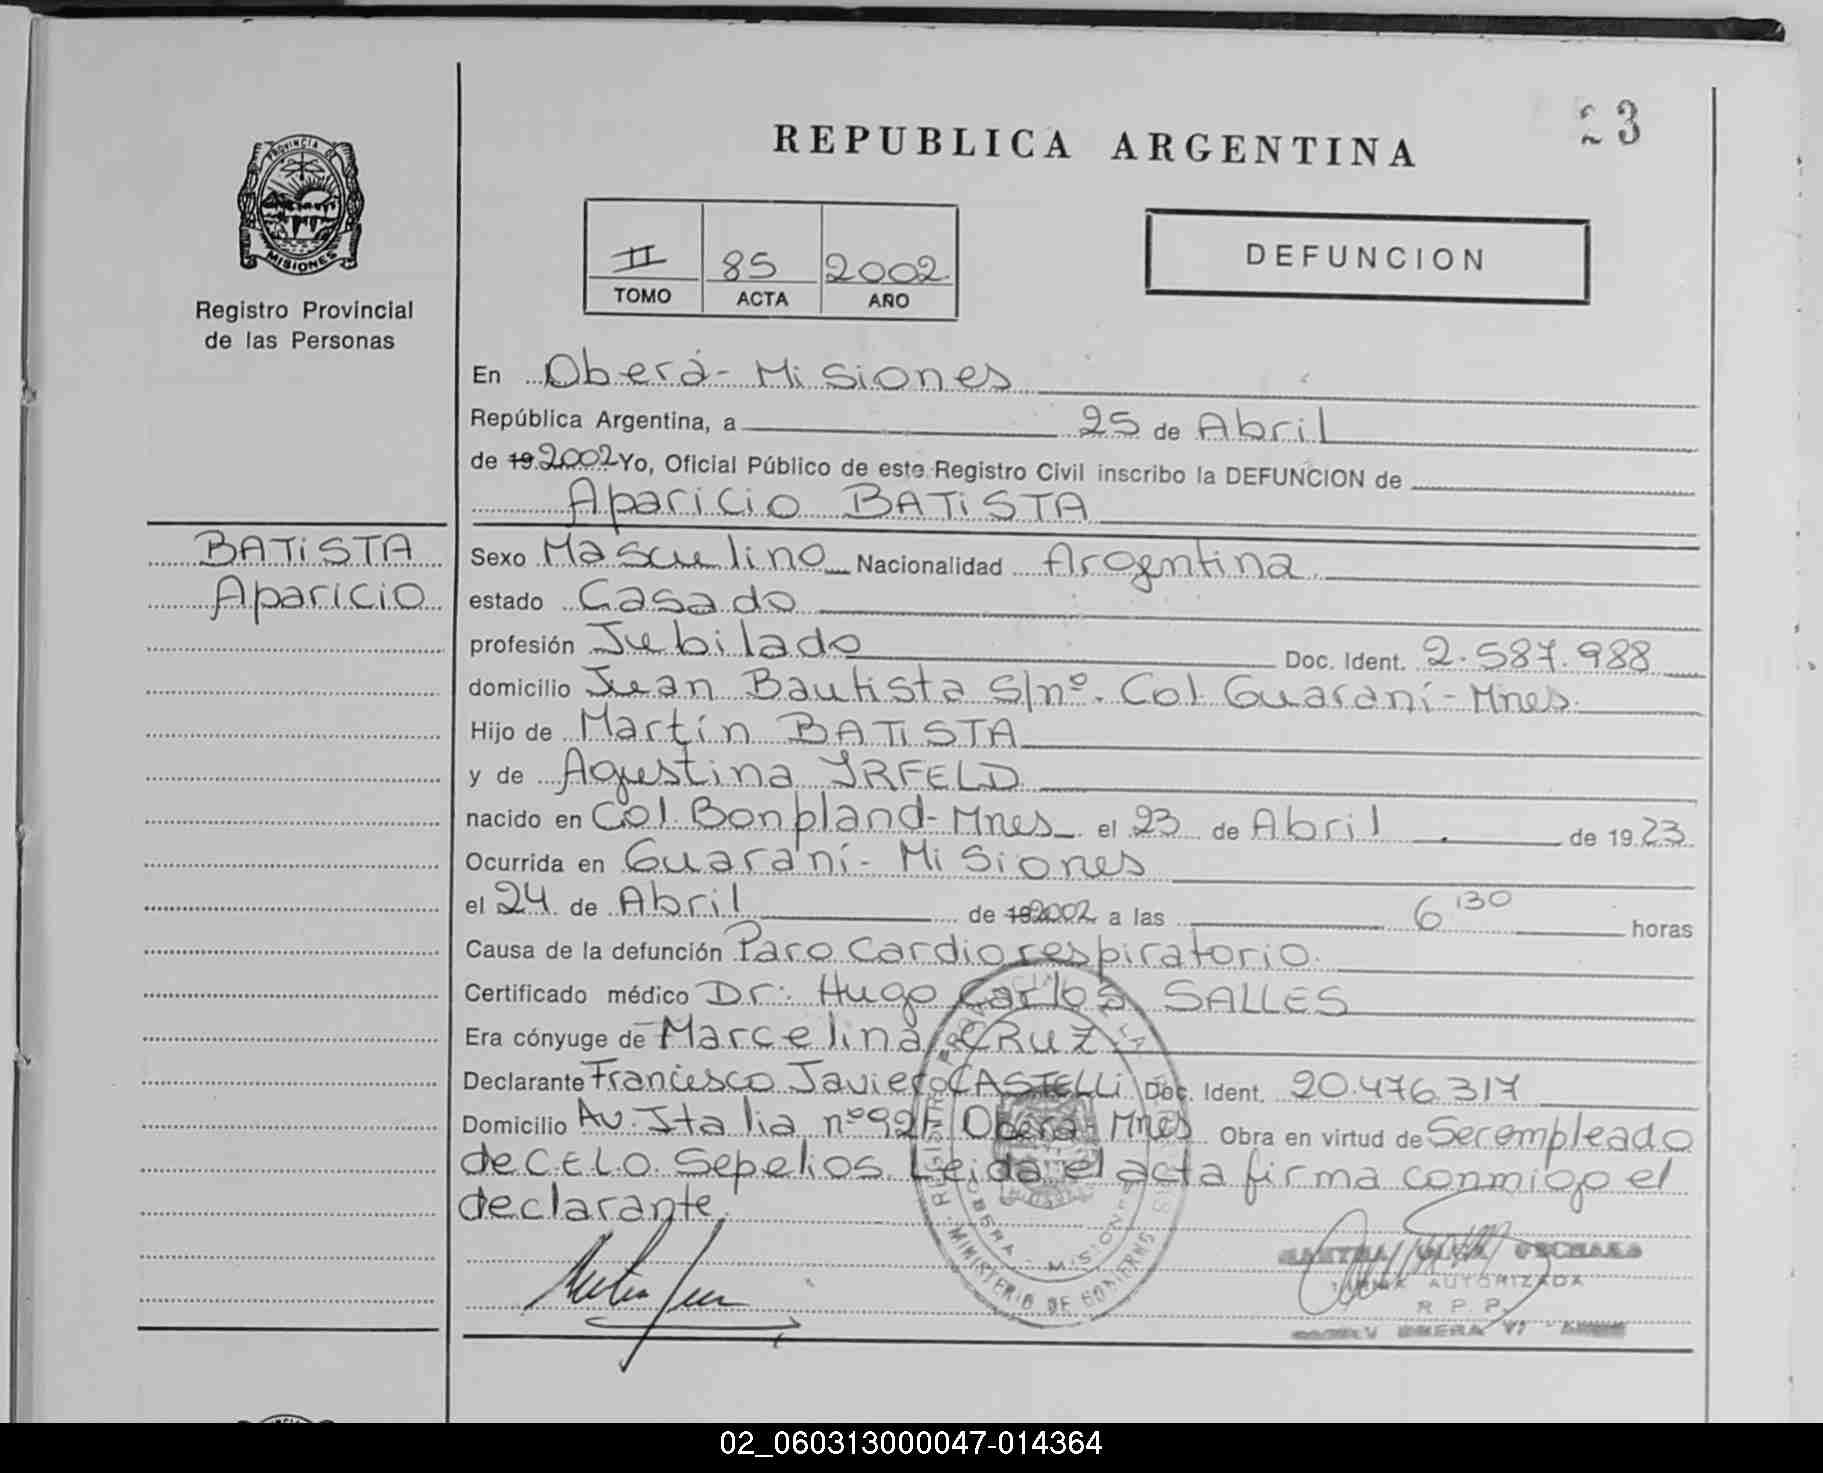 23
REPUBLICA ARGENTINA
PROVINCIA DE
MISIONES
Registro Provincial
de las Personas
II 85 2002
TOMO ACTA AÑO
DEFUNCION
En Oberá - Misiones
República Argentina, a 25 de Abril
de 19 2002 Yo, Oficial Público de este Registro Civil inscribo la DEFUNCION de
Aparicio BATISTA
BATISTA
Aparicio
Sexo Masculino Nacionalidad Argentina
estado Casado
profesión Jubilado Doc. Ident. 2.587.988
domicilio Juan Bautista S/nº. Col. Guaraní - Mnes.
Hijo de Martín BATISTA
y de Agustina IRFELD
nacido en Col. Bonpland - Mnes el 23 de Abril de 1923
Ocurrida en Guaraní - Misiones
el 24 de Abril de 19 2002 a las 6'30 horas
Causa de la defunción Paro Cardiorespiratorio.
Certificado médico Dr. Hugo Carlos SALLES
Era cónyuge de Marcelina CRUZ
Declarante Francisco Javier CASTELLi Doc. Ident. 20.476.317
Domicilio Av. Italia nº 927 Oberá Mnes Obra en virtud de Ser empleado
de C.E.L.O. Sepelios. Leida el acta firma conmigo el
declarante.
OBERA - MISIONES
MINISTERIO DE GOBIERNO
FIRMA AUTORIZADA
R. P. P.
02_060313000047-014364